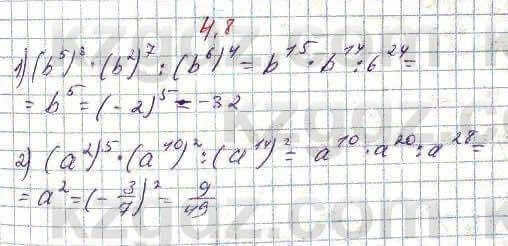 4.8
1) (b⁵)³·(b²)⁷:(b⁶)⁴= b¹⁵·b¹⁴:b²⁴=
= b⁵=(-2)⁵=-32
2) (a²)⁵·(a¹⁰)²:(a¹⁴)²= a¹⁰·a²⁰:a²⁸=
= a²=(-3/7)²= 9/49